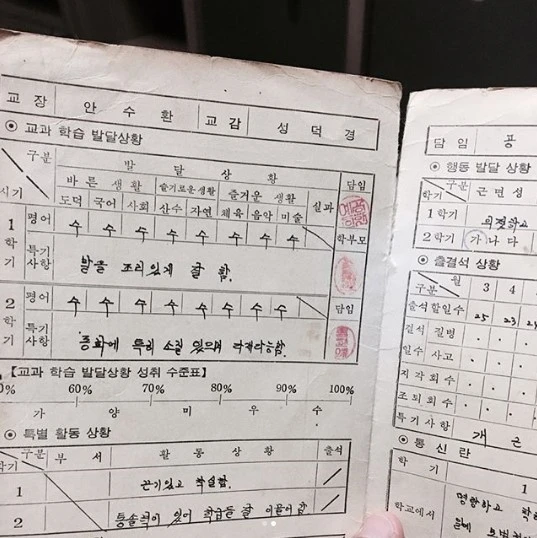 교장 안수환 교감 성덕경
⊙ 교과 학습 발달상황
구분 발달상황 담임
바른생활 슬기로운생활 즐거운 생활 실과
시기 도덕 국어 사회 산수 자연 체육 음악 미술
1학기 평어 수 수 수 수 수 수 수 수 학부모
특기사항 발표 조리있게 잘 함.
2학기 평어 수 수 수 수 수 수 수 수 담임
특기사항 동화에 특히 소질 있으며 다재다능함.
【교과 학습 발달상황 성취 수준표】
0% 60% 70% 80% 90% 100%
가 양 미 우 수
⊙ 특별 활동 상황
구분 학기 부서 활동상황 출석
1 끈기있고 착실함.
2 통솔력이 있어 학급을 잘 이끌어 감
담임 공
⊙ 행동 발달 상황
구분 학기 근면성
1학기
2학기 가 나 다
⊙ 출결석 상황
구분 월 3 4
출석할일수 25 23 24
결석 질병
일수 사고
지각회수
조퇴회수
특기사항 개근
⊙ 통신란
학기 1
학교에서 명랑하고